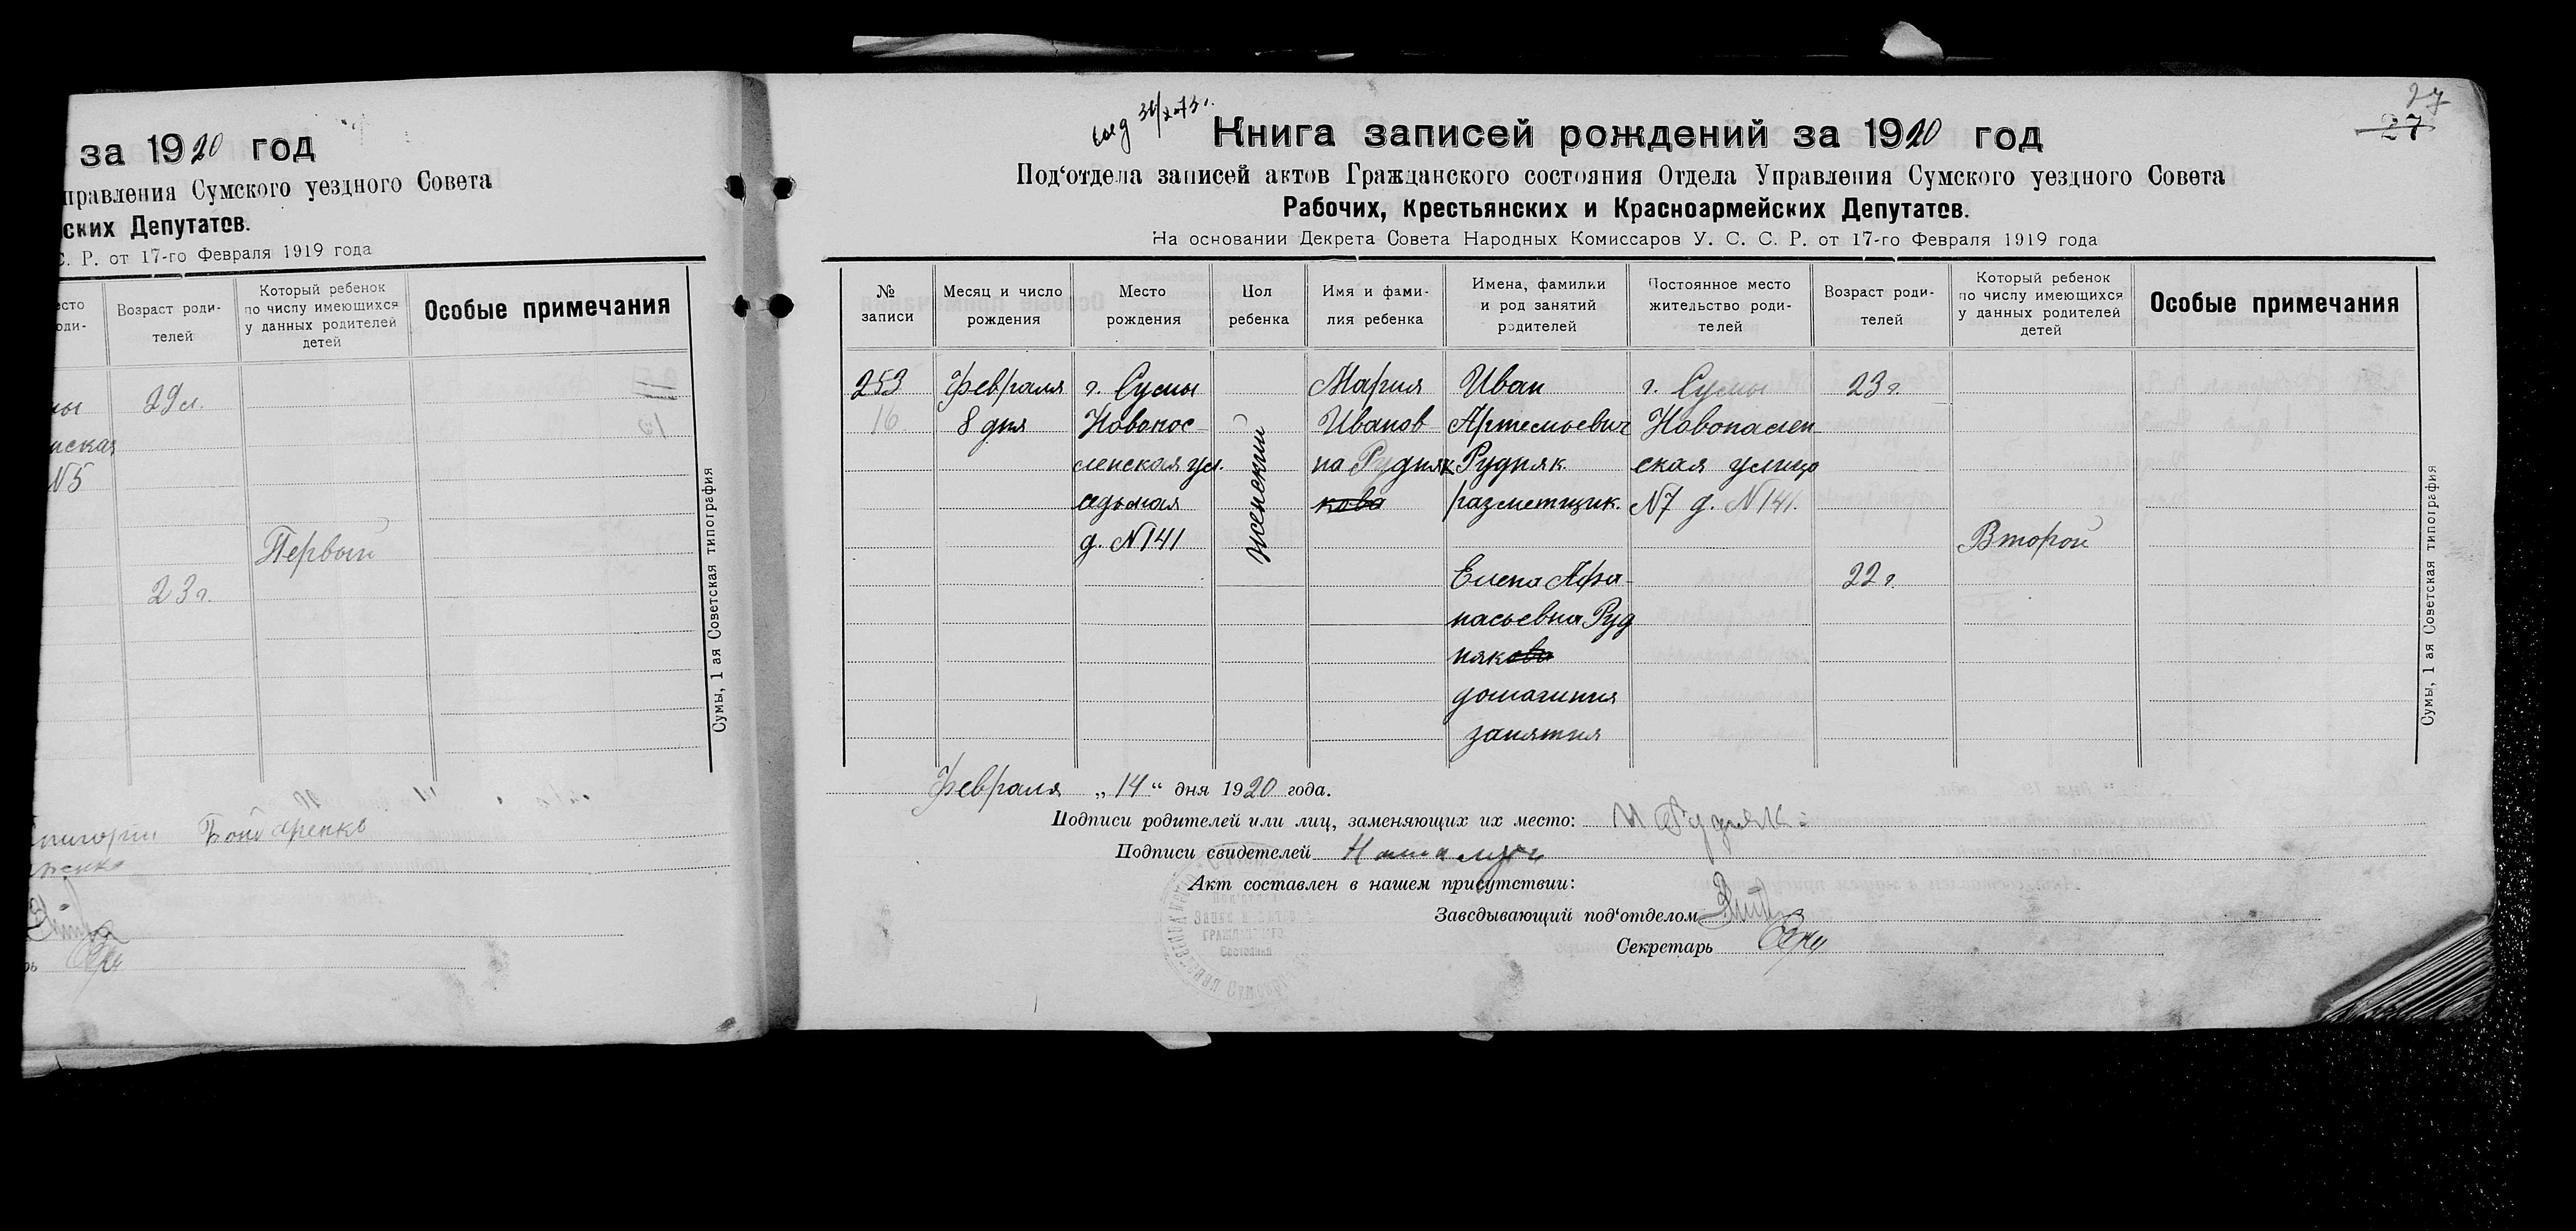 за 1920 год
правления Сумского уездного Совета
ских Депутатов.
С. Р. от 17-го Февраля 1919 года
есто
оди-
Возраст роди-
телей
Который ребенок
по числу имеющихся
у данных родителей
детей
Особые примечания
29 л.
нская
N5
Первый
23 г.
Бондаренко
Сумы, 1 ая Советская типография
27
27
Книга записей рождений за 1920 год
Под‘отдела записей актов Гражданского состояния Отдела Управления Сумского уездного Совета
Рабочих, Крестьянских и Красноармейских Депутатов.
На основании Декрета Совета Народных Комиссаров У. С. С. Р. от 17-го Февраля 1919 года
№
записи
Месяц и число
рождения
Место
рождения
Пол
ребенка
Имя и фами-
лия ребенка
Имена, фамилии
и род занятий
родителей
Постоянное место
жительство роди-
телей
Возраст роди-
телей
Который ребенок
по числу имеющихся
у данных родителей
детей
Особые примечания
253
16
Февраля
8 дня
г. Сумы
Новопос
ленская ул.
седьмая
д. N141
женский
Мария
Иванов
на Рудняк
кова
Иван
Артемьевич
Рудняк
разметщик.
Елена Афа
насьевна Руд
някова
домашния
занятия
г. Сумы
Новопослен
ская улица
N7 д. N141.
23 г.
22 г.
Второй
Февраля „14“ дня 1920 года.
Подписи родителей или лиц, заменяющих их место: И Рудняк
Подписи свидетелей
Акт составлен в нашем присутствии:
Заведывающий под‘отделом
Секретарь
Записи актов
Гражданского
Состояния
Сумы, 1 ая Советская типография